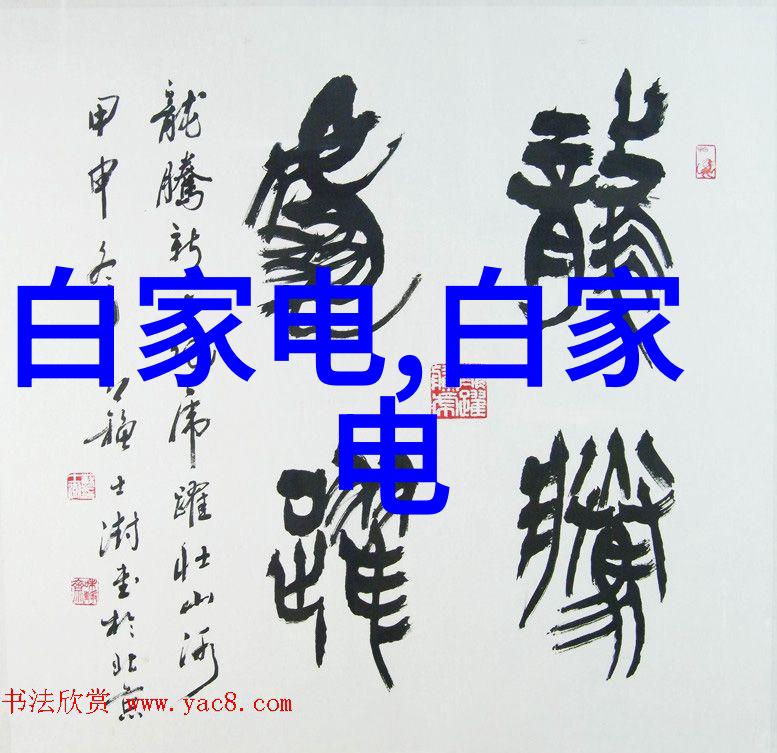 龍騰
虎躍
龍騰新虎躍壯山河
甲申冬蘇士澍書於北京
白家电,白家
电
书法欣赏 www.yac8.com